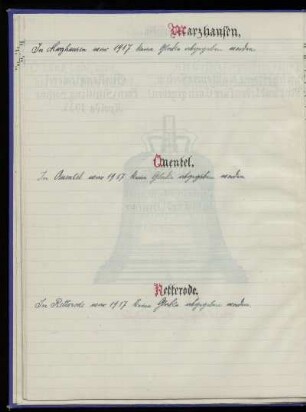 Marzhausen.
In Marzhausen war 1917 keine Glocke abgegeben worden
Quentel.
In Quentel war 1917 keine Glocke abgegeben worden
Retterode.
In Retterode war 1917 keine Glocke abgegeben worden.